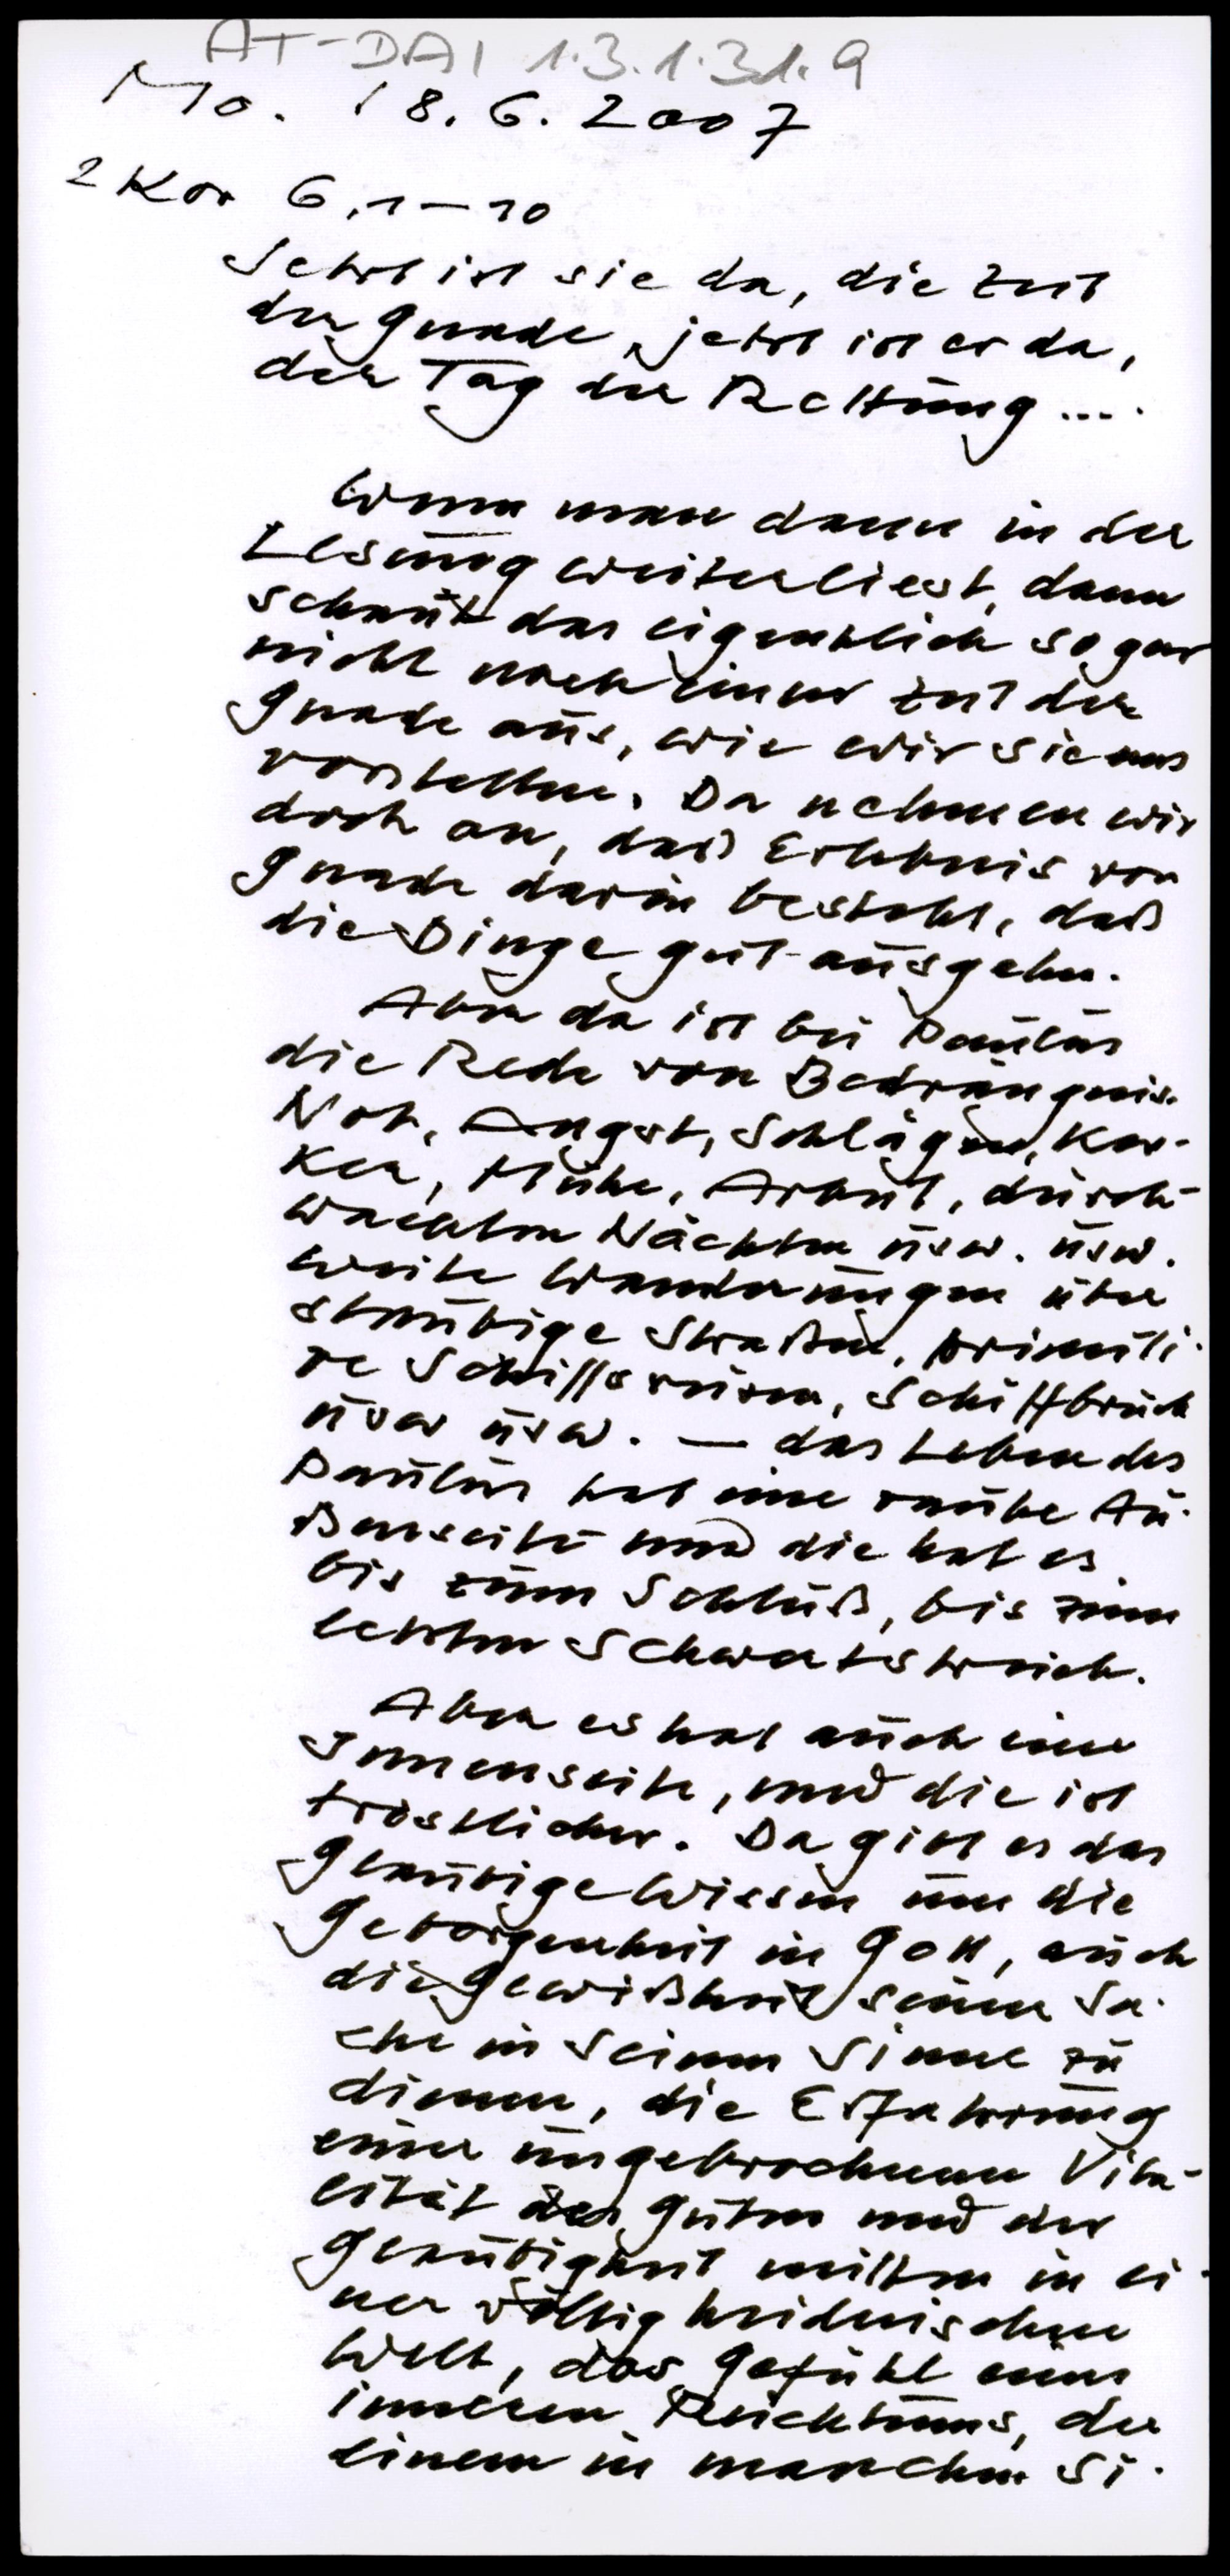 AT-DAI 1.3.1.31.9
Mo. 18.6.2007
2 Kor 6,1-10
Jetzt ist sie da, die Zeit
der Gnade, jetzt ist er da,
der Tag der Rettung ....
Wenn man dann in der
Lesung weiterliest, dann
schaut das eigentlich so gar
nicht nach einer Zeit der
Gnade aus, wie wir sie uns
vorstellen. Da nehmen wir
doch an, daß Erlebnis von
Gnade darin besteht, daß
die Dinge gut ausgehn.
Aber da ist bei Paulus
die Rede von Bedrängnis.
Not, Angst, Schlägen, Ker-
ker, Mühe, Arbeit, durch-
wachten Nächten usw. usw.
weite Wanderungen über
staubige Straßen, primiti-
ve Schiffsreisen, Schiffbruch
usw usw. — das Leben des
Paulus hat eine rauhe Au-
ßenseite und die hat es
bis zum Schluß, bis zum
letzten Schwertstreich.
Aber es hat auch eine
Innenseite, und die ist
tröstlicher. Da gibt es das
gläubige Wissen um die
Geborgenheit in Gott, auch
die Gewißheit seiner Sa-
che in seinem Sinne zu
dienen, die Erfahrung
einer ungebrochenen Vita-
lität des Guten und der
Gläubigkeit mitten in ei-
ner völlig heidnischen
Welt, das Gefühl eines
inneren Reichtums, der
einem in manchen Si-